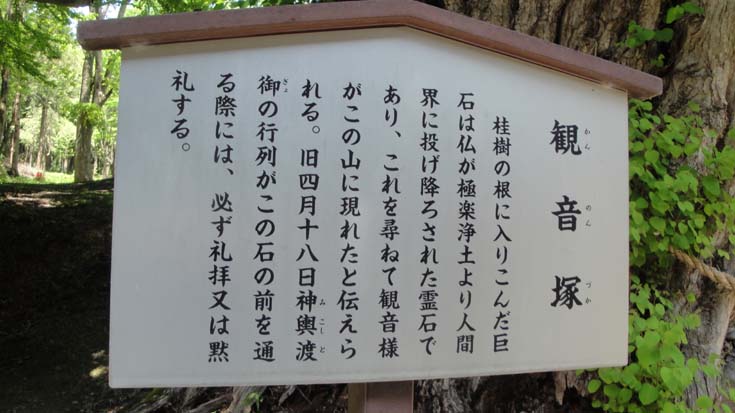 観音塚
かんのんづか
桂樹の根に入りこんだ巨
石は仏が極楽浄土より人間
界に投げ降ろされた霊石で
あり、これを尋ねて観音様
がこの山に現れたと伝えら
れる。旧四月十八日神輿渡
みこしと
御の行列がこの石の前を通
ぎょ
る際には、必ず礼拝又は黙
礼する。